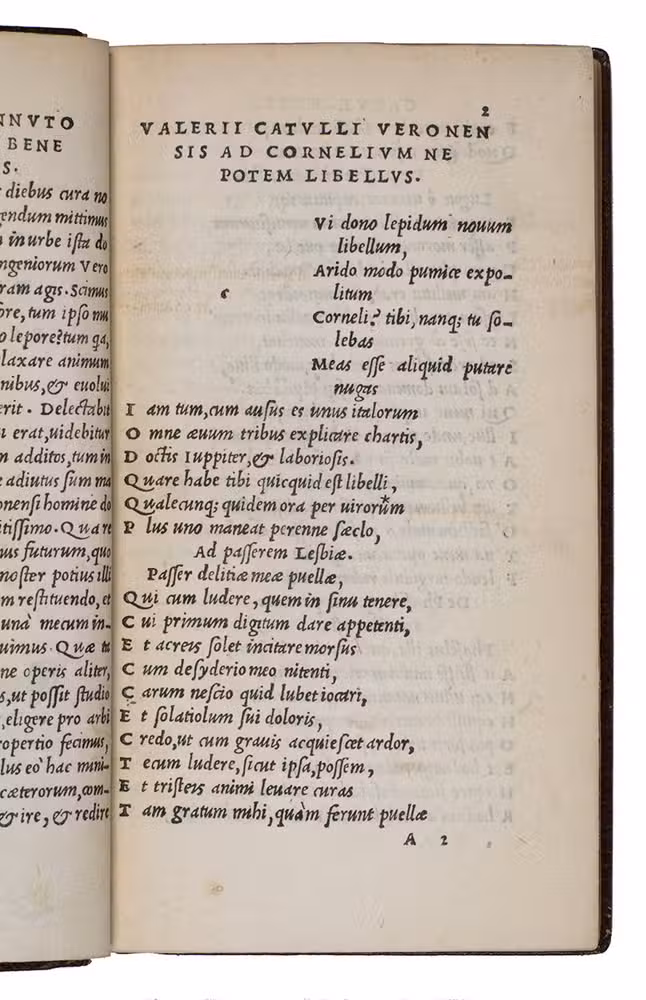 NNVTO
BENE
S.
diebus cura no
gendum mittimus
in urbe ista do
ngeniorum Vero
ram agis. Scimus
ore, tum ipso nu
o lepore? tum qa,
laxare animum
nibus, & euolui
erit. Delectabit
erat, uidebitur
n additos, tum in
e adiutus sum ma
onensi homine do
itissimo. Quare
us futurum, quo
noster potius illi
m restituendo, et
unà mecum in-
uimus. Quæ tu
ne operis aliter,
s, ut possit studio
, eligere pro arbi
ropertio fecimus,
lus eò hac mini-
cæterorum, om-
& ire, & redire
2
VALERII CATVLLI VERONEN
SIS AD CORNELIVM NE
POTEM LIBELLVS.
Vi dono lepidum nouum
libellum,
Arido modo pumice expo-
c litum
Corneli? tibi, nanq; tu so-
lebas
Meas esse aliquid putare
nugas
I am tum, cum ausus es unus italorum
O mne æuum tribus explicare chartis,
D octis Iuppiter, & laboriosis.
Q uare habe tibi quicquid est libelli,
Q ualecunq; quidem ora per uirorum*
P lus uno maneat perenne sæclo,
Ad passerem Lesbiæ.
Passer delitiæ meæ puellæ,
Q ui cum ludere, quem in sinu tenere,
C ui primum digitum dare appetenti,
E t acreis solet incitare morsus
C um desyderio meo nitenti,
C arum nescio quid lubet iocari,
E t solatiolum sui doloris,
C redo, ut cum grauis acquiescet ardor,
T ecum ludere, sicut ipsa, possem,
E t tristeis animi leuare curas
T am gratum mihi, quàm ferunt puellæ
A 2